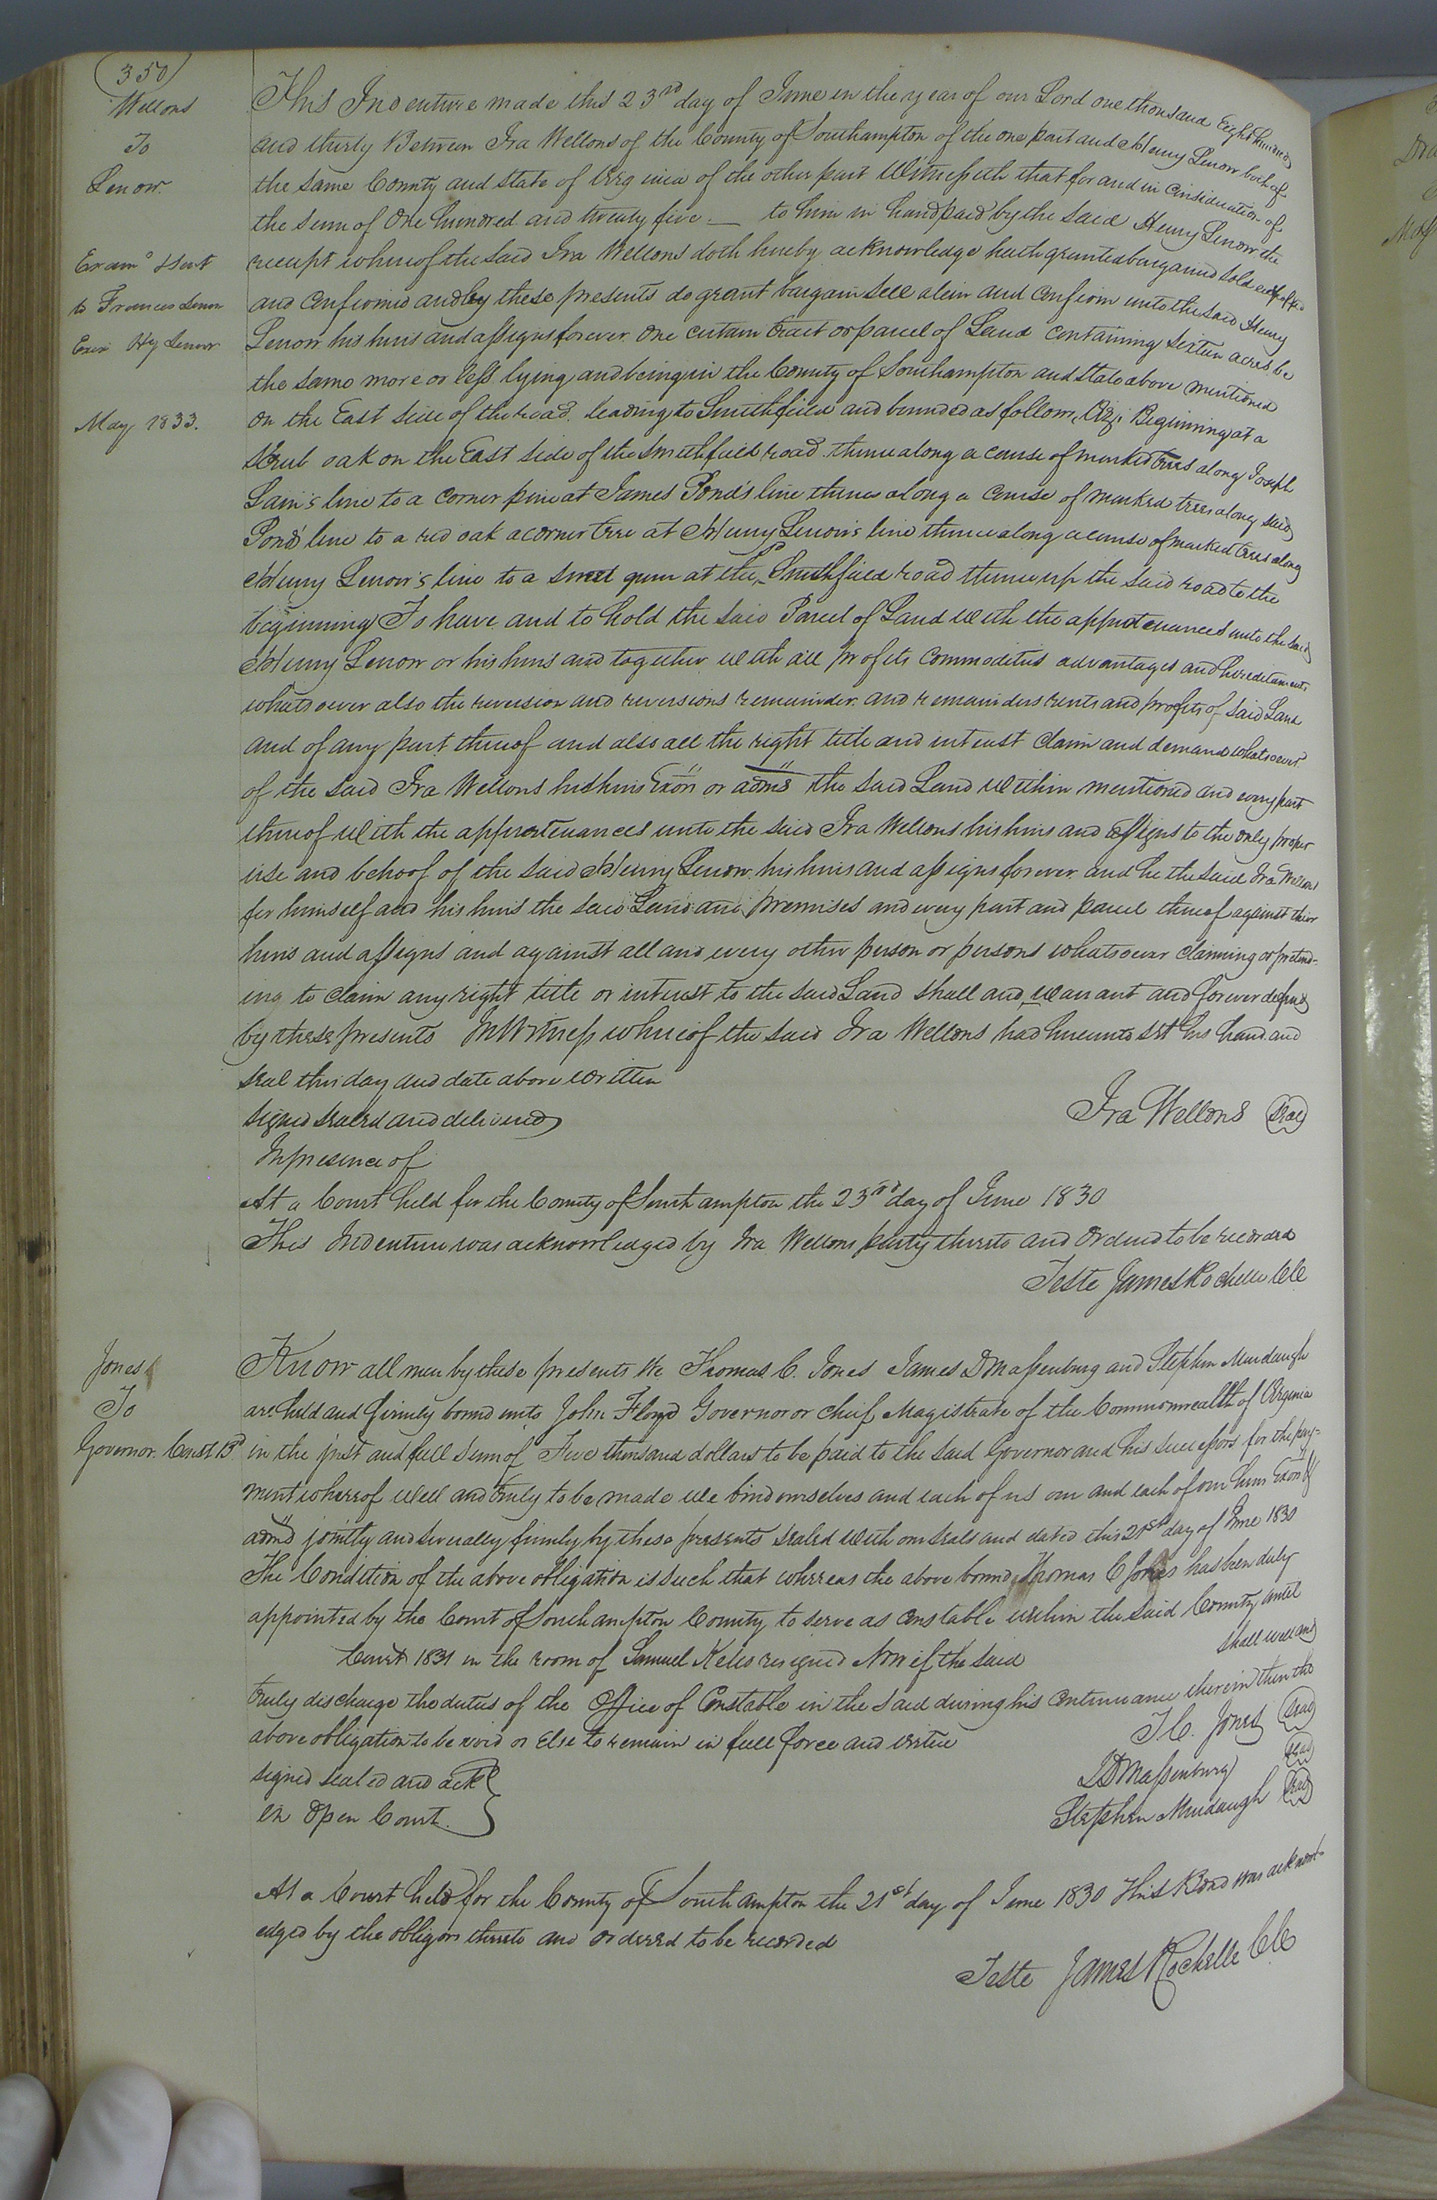 350
Wellons
To
Lenow.
Examd & sent
to Frances Lenow
Exix Hy Lenow
May 1833.
This Indenture made this 23rd day of June in the year of our Lord one thousand Eight hundred
and thirty Between Ira Wellons of the County of Southampton of the one part and Henry Lenow both of
the same County and State of Virginia of the other part Witnesseth that for and in consideration of
the sum of One hundred and twenty five — to him in hand paid by the said Henry Lenow the
receipt whereof the said Ira Wellons doth hereby acknowledge hath granted bargained sold
and confirmed and by these presents do grant bargain sell alein and confirm unto the said Henry
Lenow his heirs and assigns forever One certain tract or parcel of Land containing sixteen acres be
the same more or less lying and being in the County of Southampton and State above mentioned
on the East side of the road leading to Smithfield and bounded as follows, Viz: Beginning at a
Scrub oak on the East side of the Smithfield road thence along a course of marked trees along Joseph
Lain's line to a corner pine at James Pond's line thence along a course of marked trees along said
Pond line to a red oak a corner tree at Henry Lenow's line thence along a course of marked trees along
Henry Lenow's line to a sweet gum at the Smithfield road thence up the said road to the
beginning To have and to hold the said Parcel of Land with the appurtenances unto the said
Henry Lenow or his heirs and together with all profits commodities advantages and hereditaments
whatsoever also the reversion and reversions remainder and remainders rents and profits of said Land
and of any part thereof and also all the right title and interest claim and demand whatsoever
of the said Ira Wellons his heirs Exors or adms the said Land within mentioned and every part
thereof with the appurtenances unto the said Ira Wellons his heirs and assigns to the only proper
use and behoof of the said Henry Lenow his heirs and assigns forever and he the said Ira Wellons
for himself and his heirs the said Land and premises and every part and parcel thereof against their
heirs and assigns and against all and every other person or persons whatsoever claiming or pretend-
ing to claim any right title or interest to the said Land shall and warrant and forever defend
by these presents In Witness whereof the said Ira Wellons had hereunto set his hand and
seal this day and date above written
signed sealed and delivered
In presence of
Ira Wellons Seal
At a Court held for the County of Southampton the 23rd day of June 1830
This Indenture was acknowledged by Ira Wellons party thereto and Ordered to be recorded
Teste James Rochelle CC
Jones
To
Governor. Const Bd
Know all men by these presents We Thomas C. Jones James D Massenburg and Stephen Murdaugh
are held and firmly bound unto John Floyd Governor or chief Magistrate of the Commonwealth of Virginia
in the just and full sum of Two thousand dollars to be paid to the said Governor and his successors for the pay-
ment whereof Well and truly to be made We bind ourselves and each of us our and each of our heirs Exors &
admd jointly and severally firmly by these presents Sealed With our seals and dated this 21st day of June 1830
The Condition of the above obligation is such that whereas the above bound Thomas C Jones has been duly
appointed by the Court of Southampton County to serve as Constable within the said County until
Court 1831 in the room of Samuel Kelo resigned Now if the said shall well and
truly discharge the duties of the Office of Constable in the said during his continuance therein then the
above obligation to be void or Else to remain in full force and virtue
signed sealed and ackd
in Open Court.
T.C. Jones Seal
JD Massenburg Seal
Stephen Murdaugh Seal
At a Court held for the County of Southampton the 21st day of June 1830 This Bond was acknowl-
edged by the obligors thereto and ordered to be recorded
Teste James Rochelle CC